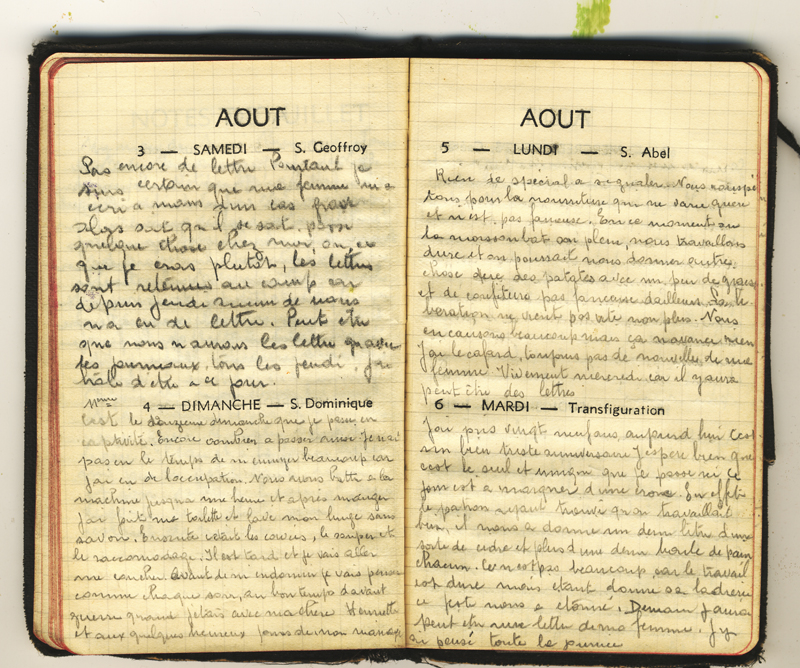 AOUT
3 — SAMEDI — S. Geoffroy
Pas encore de lettre Pourtant je
suis certain que ma femme m'a
écri a moins d'un cas grave
alors soit qu'il se soit passé
quelque chose chez moi, ou ce
que je crois plutôt, les lettres
sont retenues au camp car
depuis jeudi aucun de nous
n'a eu de lettre. Peut etre
que nous n'aurons les lettre qu'avec
les journaux, tous les jeudi. J'ai
hâte d'etre a ce jour.
4 — DIMANCHE — S. Dominique
C'est le douzeme dimanche que je passe en
captivité. Encore combien a passer ainsi Je n'ai
pas eu le temps de m'ennuyer beaucoup car
j'ai eu de l'occupation. Nous avons battu a la
machine jusqua une heure et après manger
j'ai fait ma toilette et lavé mon linge sans
savon. Ensuite le souper et
le raccomodage. Il est tard et je vais aller
me coucher. Avant de m'endormir je vais penser
comme chaque soir, au bon temps d'avant
guerre quand j'etais avec ma chère Henriette
et aux quelques heureux jours de mon mariage
AOUT
5 — LUNDI — S. Abel
Rien de spécial a signaler. Nous
tous pour la nourriture qui ne varie guere
et n'est pas fameuse. En ce moment, ou
la moisson bat son plein, nous travaillons
dure et on pourrait nous donner autre
chose que des patates avec un peu de graisse
et de confiture pas fameuse d'ailleurs. La li-
beration ne vient pas vite non plus. Nous
en causons beaucoup mais ça n'avance rien
J'ai le cafard, toujours pas de nouvelles de ma
femme. Vivement mercredi car il y aura
peut être des lettres
6 — MARDI — Transfiguration
J'ai pris vingt neuf ans aujourd'hui C'est
un bien triste anniversaire J'espère bien que
c'est le seul et unique que je passe ici Ce
jour est a marquer d'une croix. En effet
le patron ayant trouvé qu'on travaillait
bien, il nous a donné un demi litre d'une
sorte de cidre et plus d'une demi boule de pain
chacun. Ce n'est pas beaucoup, car le travail
est dure mais étant donné sa ladrerie
ce geste nous a étonné. Demain j'aurai
peut etre une lettre de ma femme. J'y
ai pensé toute la